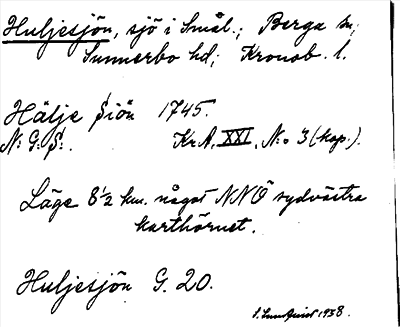 Huljesjön, sjö i Smål.; Berga sn;
Sunnerbo hd; Kronob. l.
Hälje Siön 1745.
N: G: S:. Kr.A. XXI, N:o 3 (kop.).
Läge 8 1/2 km. något NNÖ sydvästra
karthörnet.
Huljesjön G. 20.
S. Lundquist 1938.